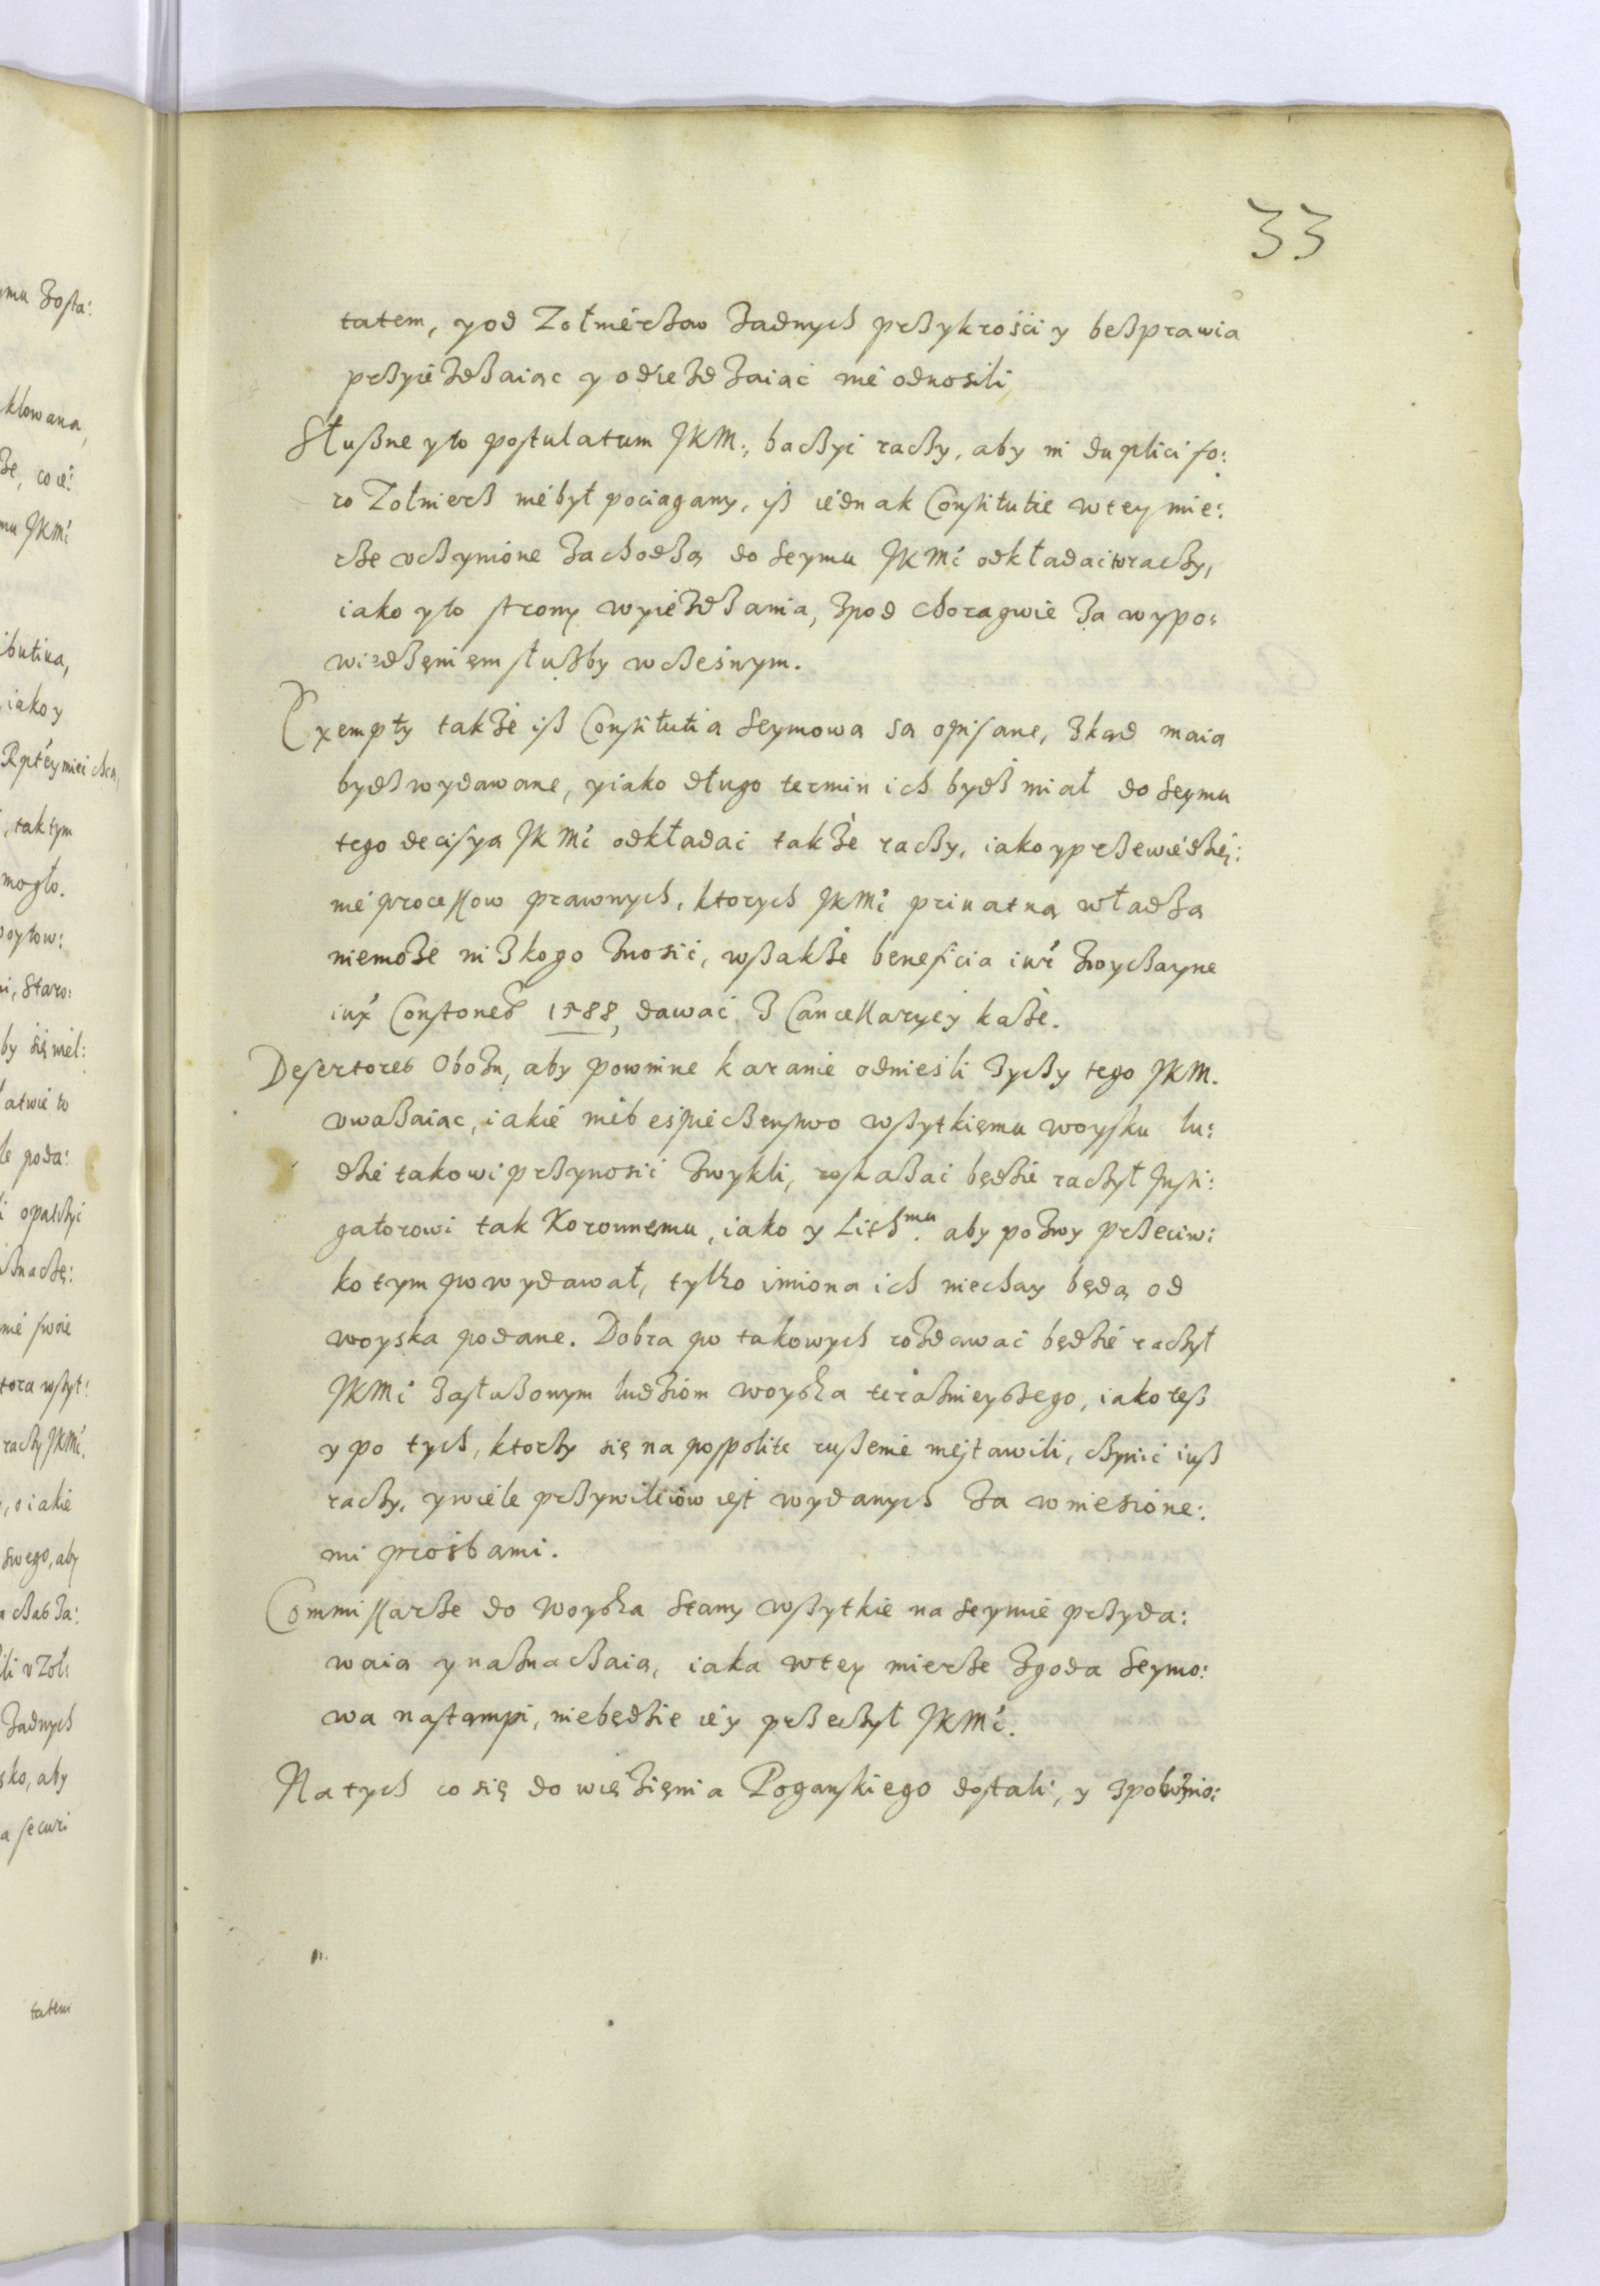 33
tatem, y od Zołnierzow żadnych przykrości y bezprawia
przyieżdżaiąc y odieżdżaiąc nie odnosili,
Słuszne y to postulatum JKM:, baczyć raczy, aby in duplici fo:
ro Zołnierz nie był pociągany, iż iednak Constitutie w tey mie:
rze uczynione zachodzą do Seymu JKMć odkładać to raczy,
iako y to strony wyieżdżania, z pod chorągwie za wypo:
wiedzęnięm służby wczesnym.
Exempty także iż Constitutią Seymową są opisane, zkąd maią
bydź wydawane, y iako długo termin ich bydź miał do Seymu
tego decisyą JKMć odkładać także raczy, iako y przewiedzię:
nie processow prawnych, ktorych JKMć priuatną władzą
niemoże ni zkogo znosić, wszakże beneficia iur̃ zwyczayne
iux̃ Constones 1588, dawać z Cancellaryey każe.
Desertores Obozu, aby powinne karanie odnieśli życzy tego JKM.
uważaiąc, iakie niebespieczenstwo wszytkięmu woysku lu:
dzie takowi przynosić zwykli, roskazać będzie raczył Insti:
gatorowi tak Koronnęmu, iako y Lith.mu aby pozwy przeciw:
ko tym powydawał, tylko imiona ich niechay będą od
woyska podane. Dobra po takowych rozdawać będzie raczył
JKMć zasłużonym ludziom woyska teraznieyszego, iako też
y po tych, ktorzy się na pospolite ruszenie niestawili, czynić iuż
raczy, y wiele przywileiow iest wydanych za wniesione:
mi prośbami.
Commissarze do Woyska Stany wszytkie na Seymie przyda:
waią y naznaczaią, iaka w tey mierze zgoda Seymo:
wa nastąmpi, niebędzie iey przeczył JKMć.
Na tych co się do więzięnia Pogańskiego dostali, y